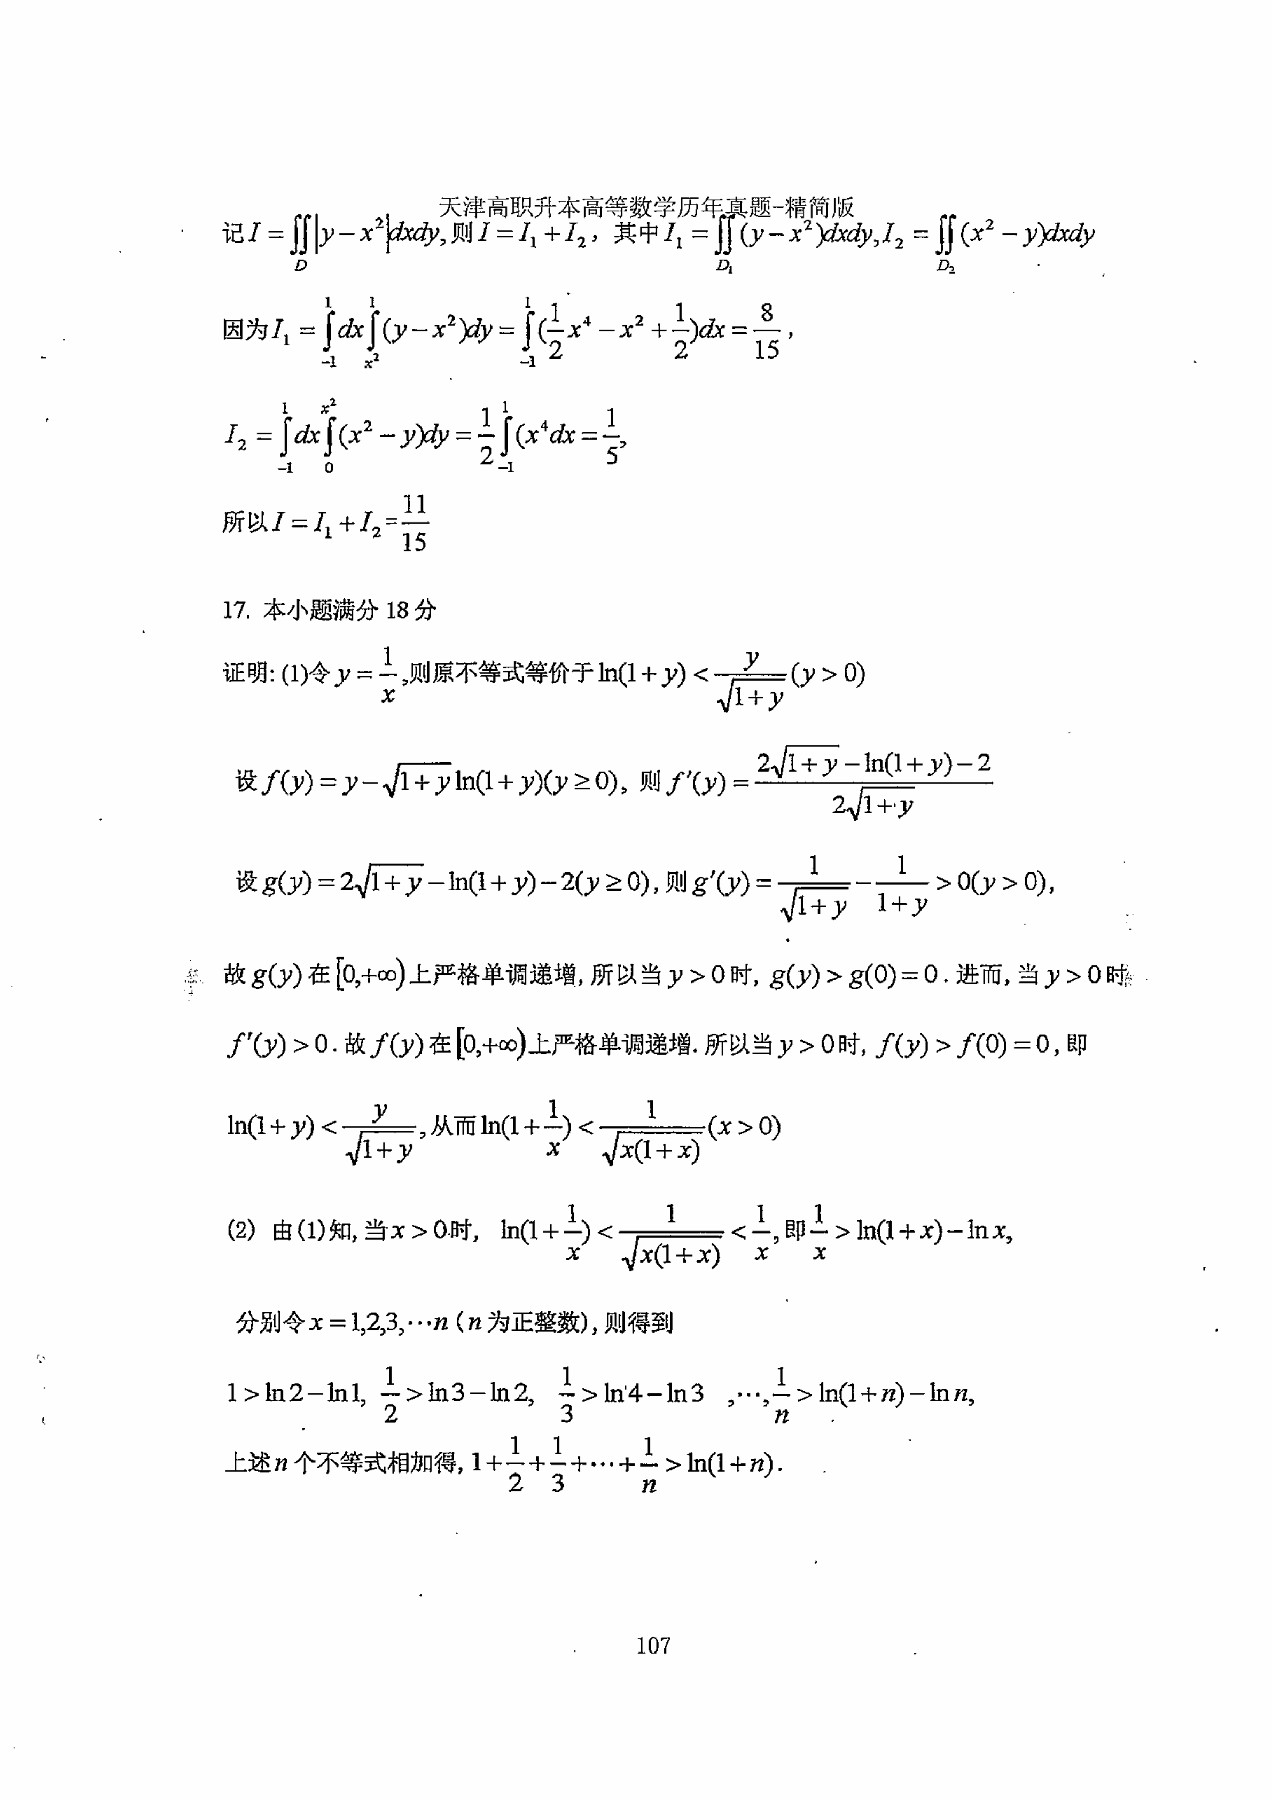 天津高职升本高等数学历年真题-精简版
记 I = ∬_D |y − x²| dxdy, 则 I = I₁ + I₂, 其中 I₁ = ∬_{D₁} (y − x²)dxdy, I₂ = ∬_{D₂} (x² − y)dxdy
因为 I₁ = ∫_{-1}^{1} dx ∫_{x²}^{1} (y − x²)dy = ∫_{-1}^{1} (1/2 x⁴ − x² + 1/2)dx = 8/15 ,
I₂ = ∫_{-1}^{1} dx ∫_{0}^{x²} (x² − y)dy = 1/2 ∫_{-1}^{1} (x⁴dx = 1/5,
所以 I = I₁ + I₂ = 11/15
17. 本小题满分 18 分
证明: (1)令 y = 1/x ,则原不等式等价于 ln(1 + y) < y/√(1+y) (y > 0)
设 f(y) = y − √(1+y) ln(1 + y)(y ≥ 0), 则 f′(y) = (2√(1+y) − ln(1+y) − 2)/(2√(1+y))
设 g(y) = 2√(1+y) − ln(1+y) − 2(y ≥ 0), 则 g′(y) = 1/√(1+y) − 1/(1+y) > 0(y > 0),
故 g(y) 在 [0,+∞) 上严格单调递增, 所以当 y > 0 时, g(y) > g(0) = 0 . 进而, 当 y > 0 时
f′(y) > 0 . 故 f(y) 在 [0,+∞) 上严格单调递增. 所以当 y > 0 时, f(y) > f(0) = 0 , 即
ln(1 + y) < y/√(1+y) , 从而 ln(1 + 1/x) < 1/√(x(1+x)) (x > 0)
(2) 由(1)知, 当 x > 0 时, ln(1 + 1/x) < 1/√(x(1+x)) < 1/x , 即 1/x > ln(1 + x) − ln x,
分别令 x = 1,2,3,⋯n ( n 为正整数), 则得到
1 > ln 2 − ln 1, 1/2 > ln 3 − ln 2, 1/3 > ln 4 − ln 3 ,⋯, 1/n > ln(1 + n) − ln n,
上述 n 个不等式相加得, 1 + 1/2 + 1/3 + ⋯ + 1/n > ln(1 + n).
107